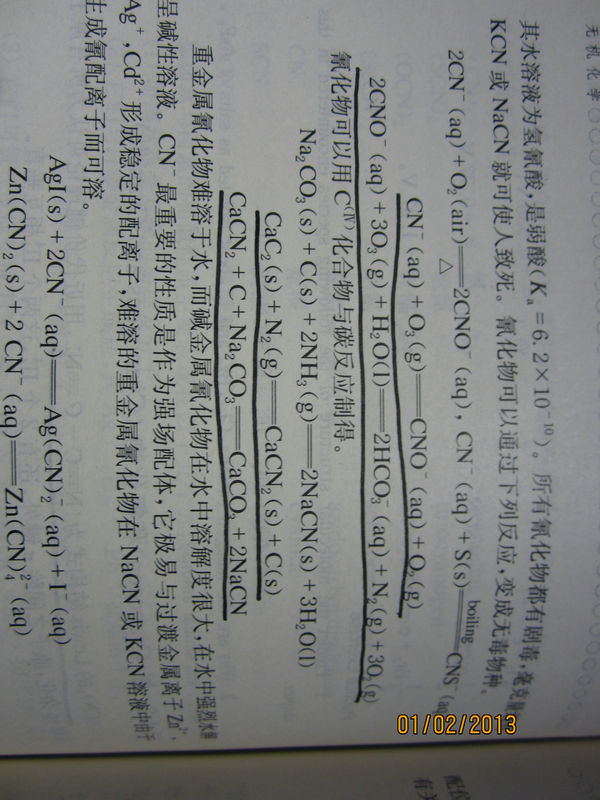 无机化学
其水溶液为氢氰酸,是弱酸(Kₐ=6.2×10⁻¹⁰)。所有氰化物都有剧毒,毫克量
KCN 或 NaCN 就可使人致死。氰化物可以通过下列反应,变成无毒物种。
2CN⁻(aq)+O₂(air)══2CNO⁻(aq), CN⁻(aq)+S(s)══CNS⁻(aq
△ boiling
CN⁻(aq)+O₃(g)══CNO⁻(aq)+O₂(g)
2CNO⁻(aq)+3O₃(g)+H₂O(l)══2HCO₃⁻(aq)+N₂(g)+3O₂(g)
氰化物可以用 C⁽ᴵⱽ⁾化合物与碳反应制得。
Na₂CO₃(s)+C(s)+2NH₃(g)══2NaCN(s)+3H₂O(l)
CaC₂(s)+N₂(g)══CaCN₂(s)+C(s)
CaCN₂+C+Na₂CO₃══CaCO₃+2NaCN
重金属氰化物难溶于水,而碱金属氰化物在水中溶解度很大,在水中强烈水解
呈碱性溶液。CN⁻ 最重要的性质是作为强场配体,它极易与过渡金属离子 Zn²⁺,
Ag⁺,Cd²⁺ 形成稳定的配离子,难溶的重金属氰化物在 NaCN 或 KCN 溶液中由于
生成氰配离子而可溶。
AgI(s)+2CN⁻(aq)══Ag(CN)₂⁻(aq)+I⁻(aq)
Zn(CN)₂(s)+2 CN⁻(aq)══Zn(CN)₄²⁻(aq)
配位
有关
01/02/2013